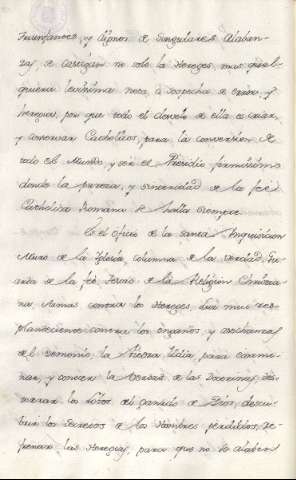 Triunfantes, y dignos de singulares Alaban-
zas, se castigan no solo la Hereges, mas qual-
quiera levissima nota, o sospecha de error, y
heregia, por que todo el desvelo de ella es criar,
y conservar Catholicos, para la conversion de
todo el Mundo, y ser el Presidio firmissimo
donde la pureza, y sinceridad de la fee
Catholica Romana se halla siempre.
Es el oficio de la santa Inquisicion
Muro de la Iglesia, columna de la verdad, Gu-
arda de la fé, Tesoro de la Religion Christia-
na, Armas contra los Hereges, Luz muy res-
plandeciente contra los engaños, y asechanzas
del demonio, la Piedra para exami-
nar, y conocer la verdad de las Doctrinas,
los Lobos del ganado de Dios, descu-
brir los secretos de los Hombres perdidos, re-
frenar las Heregias, para que no se alaben